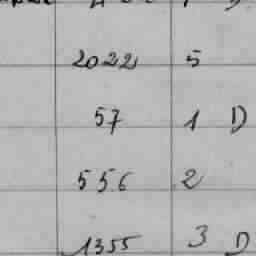 2022 5
57 1 D
556 2
1355 3 D